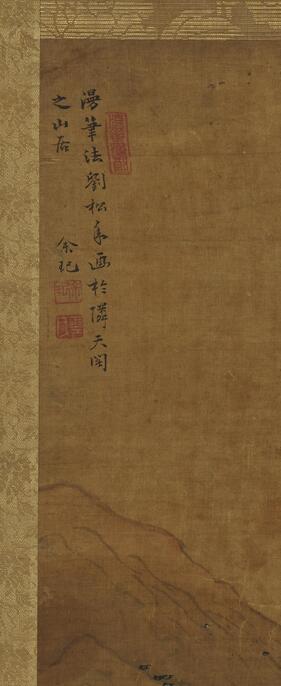 漫筆法劉松年画於隣天閣
之山居
余玘